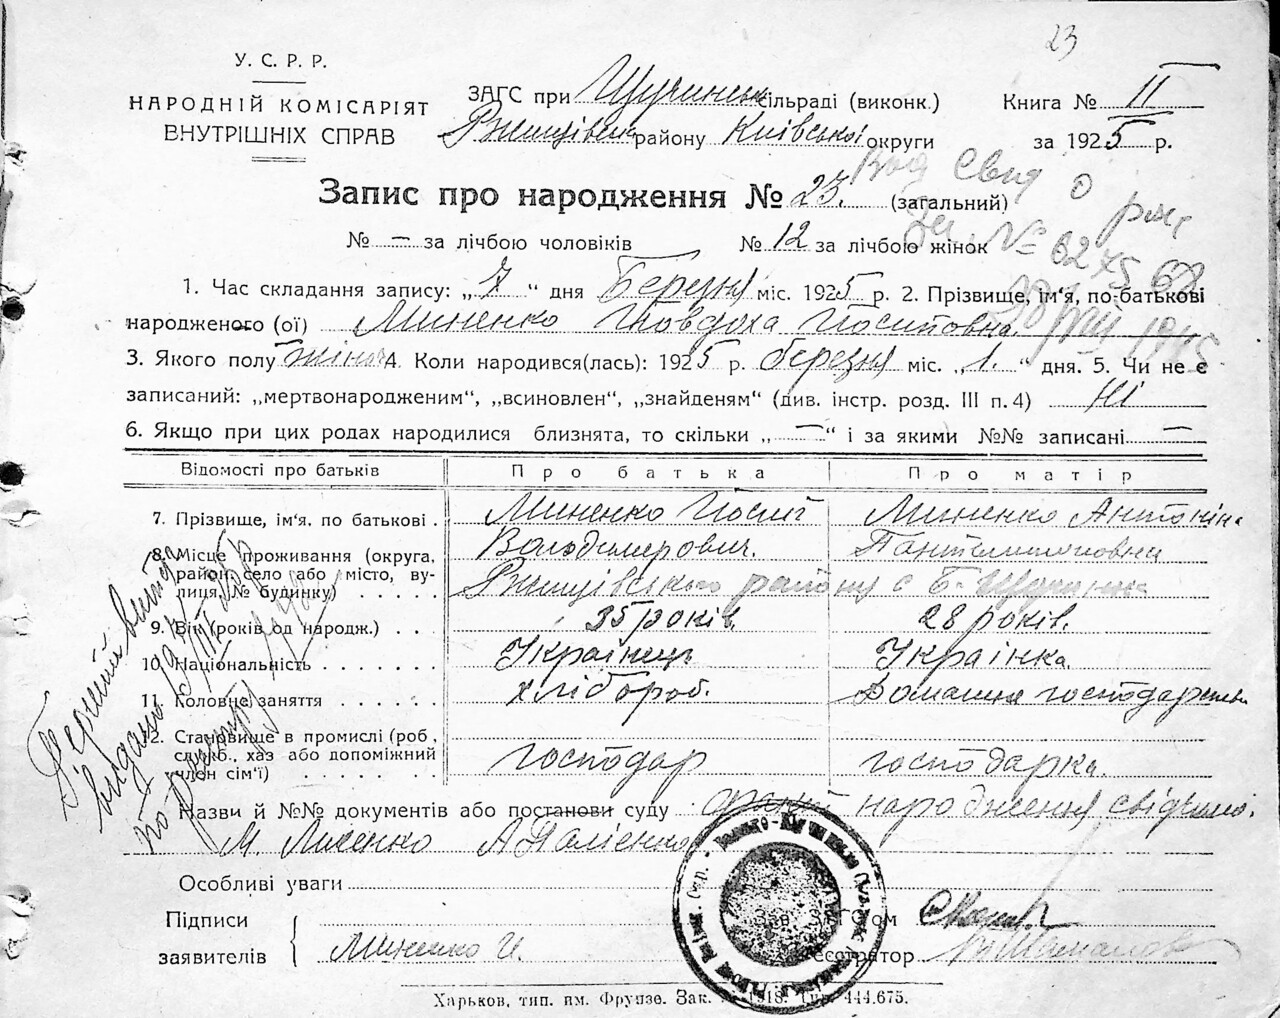 23
У. С. Р. Р.
НАРОДНІЙ КОМІСАРІЯТ
ВНУТРІШНІХ СПРАВ
ЗАГС при Щучинськ сільраді (виконк.)
Ржищівськ району Київської округи
Книга № II
за 1925 р.
Запис про народження № 23. (загальний)
№ — за лічбою чоловіків № 12 за лічбою жінок
1. Час складання запису: „7" дня Березня міс. 1925 р. 2. Прізвище, ім'я, по-батькові
народженого (ої) Миненко Йовдоха Йосиповна.
3. Якого полу жіноч 4. Коли народився(лась): 1925 р. березня міс. „1." дня. 5. Чи не є
записаний: „мертвонародженим", „всиновлен", „знайденям" (див. інстр. розд. III п. 4) Ні
6. Якщо при цих родах народилися близнята, то скільки „—" і за якими №№ записані —
Відомості про батьків Про батька Про матір
7. Прізвище, ім'я, по батькові . Миненко Йосип Миненко Антонін
Володимерович. Пантелимоновна
8. Місце проживання (округа,
район, село або місто, ву-
лиця, № будинку) . . . . . Ржищівського району с Б. Щучинка
9. Вік (років од народж.) . . . 35 років. 28 років.
10. Національність . . . . . . . Українець Українка.
11. Головне заняття . . . . . хлібороб. Домашнє господарство
12. Становище в промислі (роб.,
служб., хаз або допоміжний
член сім'ї) . . . . . . . господар господарка.
Назви й №№ документів або постанови суду народження свідчимо:
М. Лисенко А Палієнко
Особливі уваги
Підписи
заявителів Миненко Й.
Зав. ЗАГС'ом
Реєстратор
Харьков, тип. им. Фрунзе. Зак. 1918. Тир. 444.675.